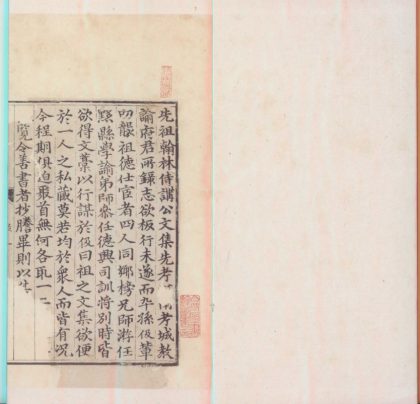 先祖翰林侍講公文集先考考城教
諭府君所鋟志欲板行未遂而卒孫伋輩
叨襲祖德仕宦者四人同鄉榜兄師游任
縣學諭弟師任德興司訓將別時皆
欲得文藁以行謀於伋曰祖之文集欲便
於一人之私藏莫若均於衆人而皆有況
今程期俱迫聚首無何各取一
覽令善書者抄謄畢則以